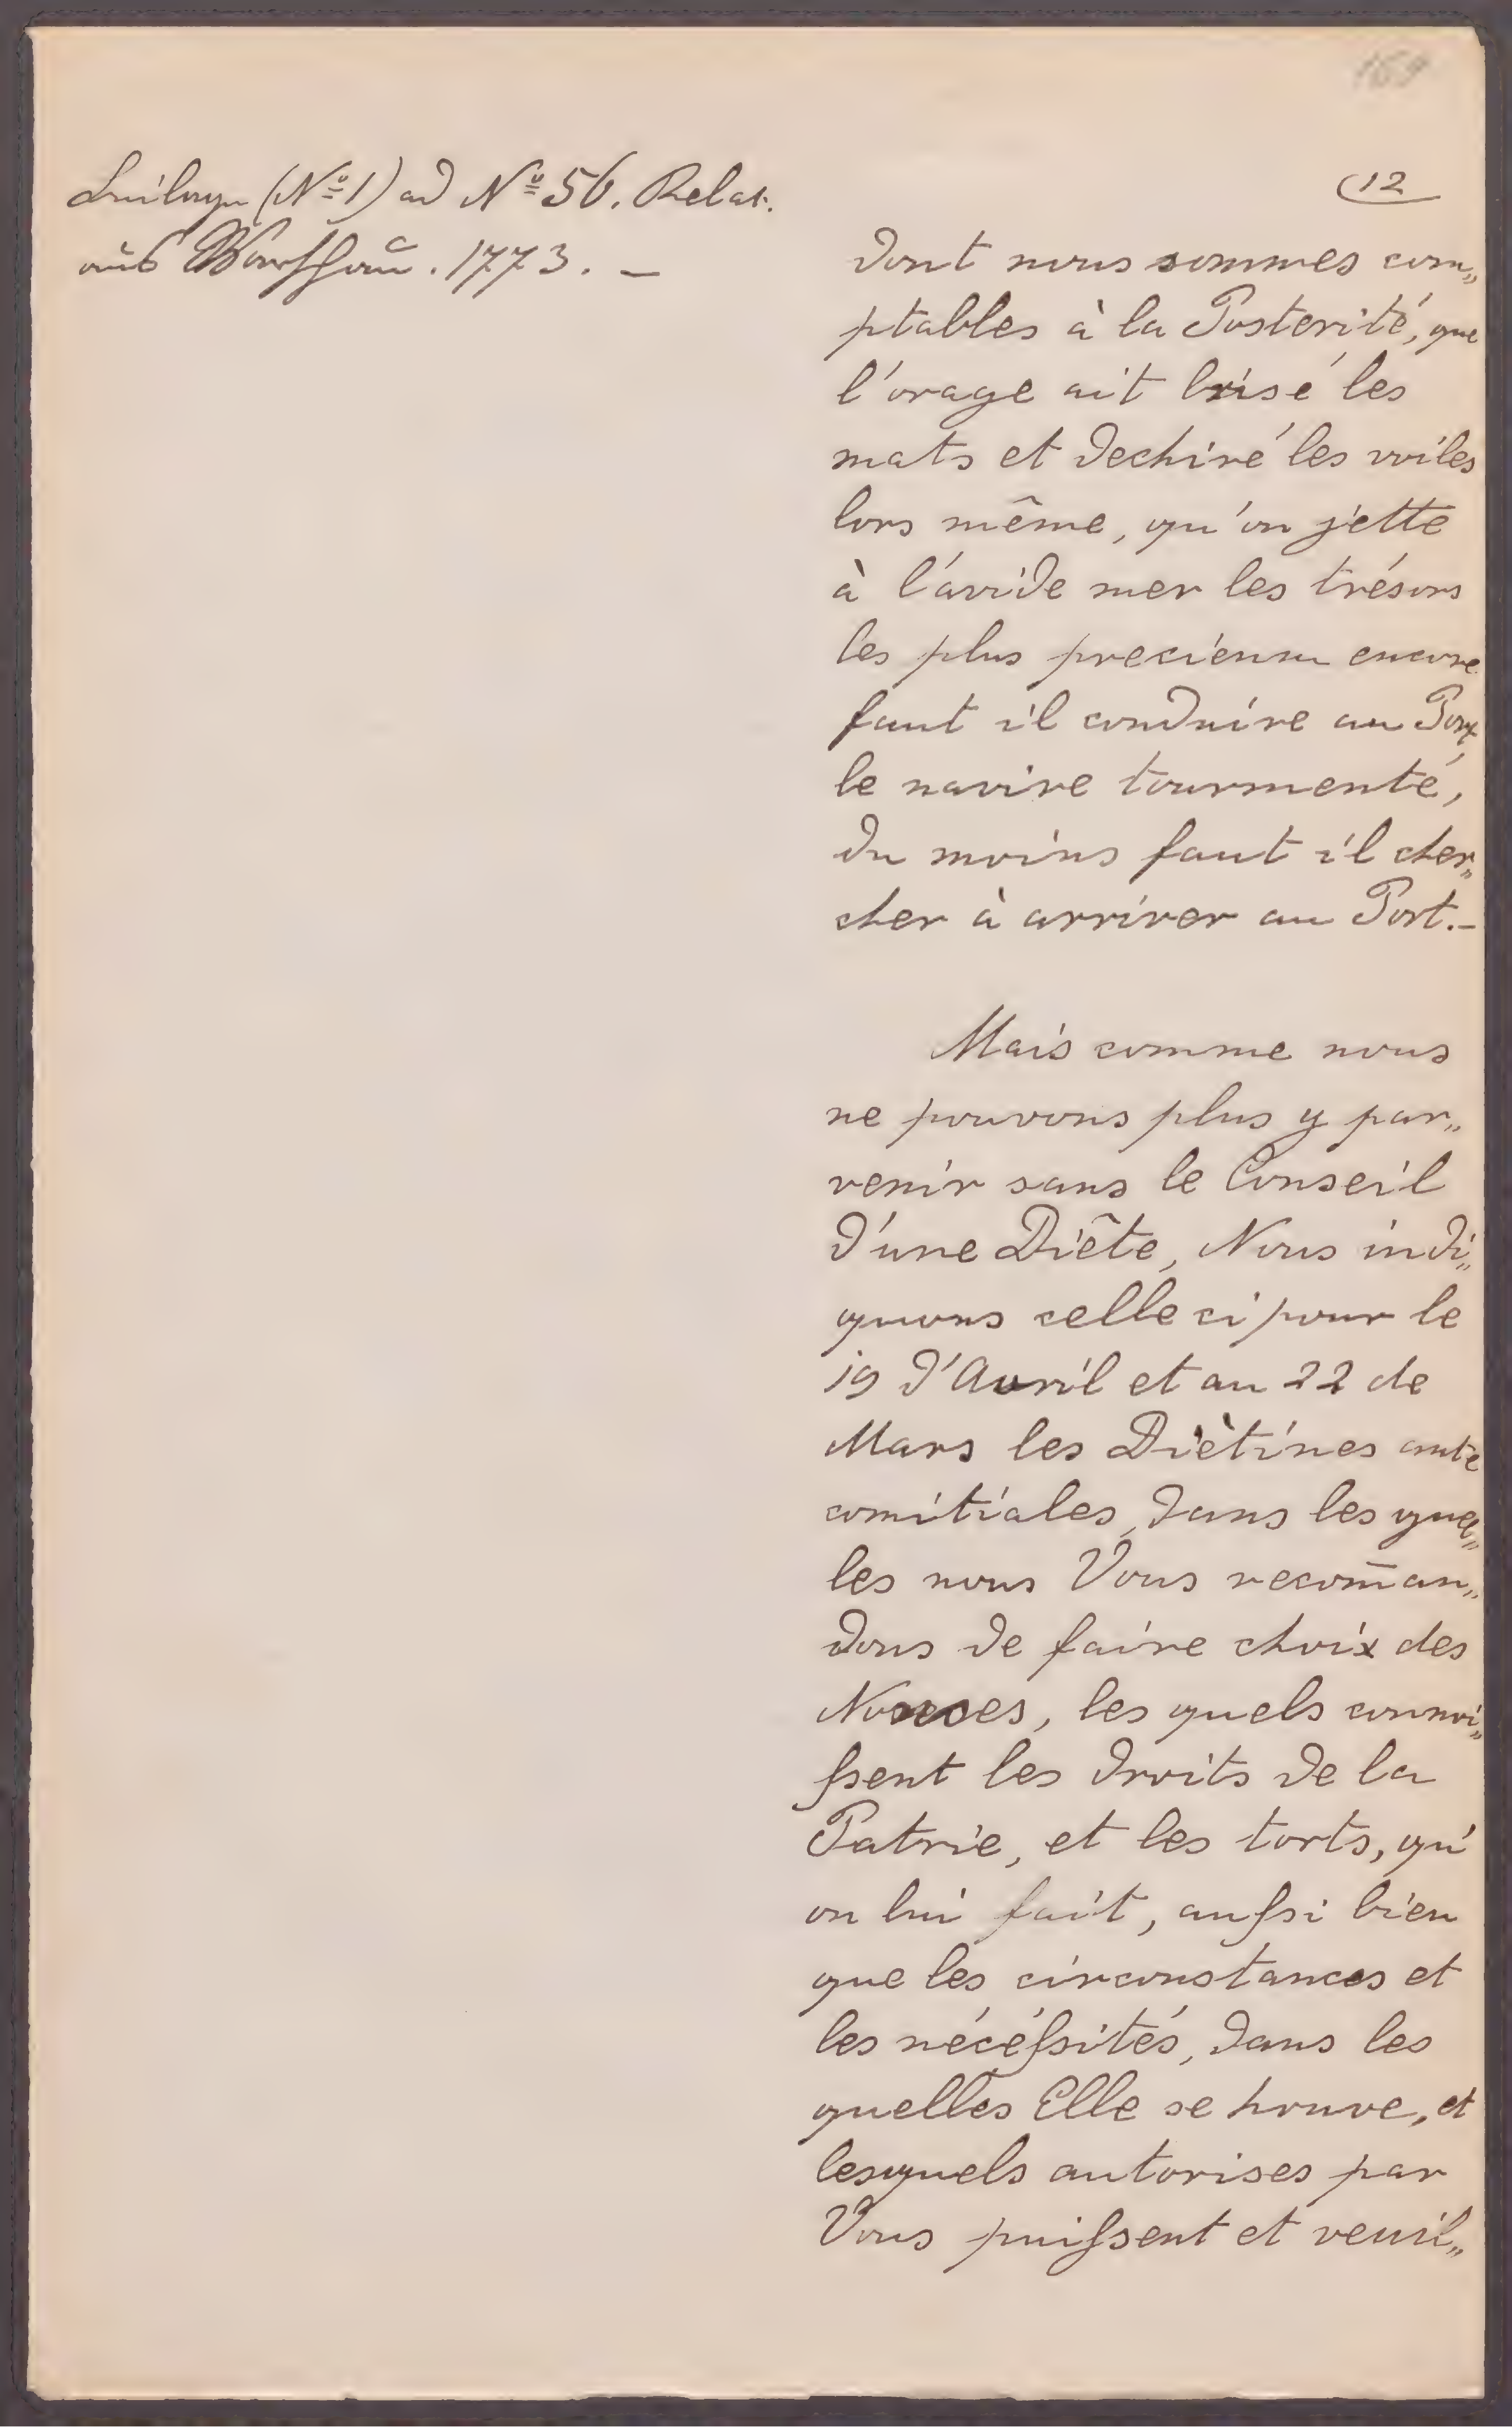 169
Beilage (No 1) ad No 56. Relat.
aus Warschau. 1773. —
12
dont nous sommes com„
ptables à la Posterité, que
l'orage ait brisé les
mats et dechiré les voiles
lors même, qu'on jette
à l'avide mer les trésors
les plus precieux encore
faut il conduire au Port
le navire tourmenté,
du moins faut il cher„
cher à arriver au Port.–
Mais comme nous
ne pouvons plus y par„
venir sans le Conseil
d'une Diête, Nous indi„
quons celle ci pour le
19 d'Avril et au 22 de
Mars les Diètines ante
comitiales, dans les quel„
les nous Vous recom̄an„
dons de faire choix des
Nonces, les quels connoi„
ſsent les droits de la
Patrie, et les torts, qu'
on lui fait, auſsi bien
que les circonstances et
les nécéſsités, dans les
quelles Elle se trouve, et
lesquels autorises par
Vous puiſsent et veuil„